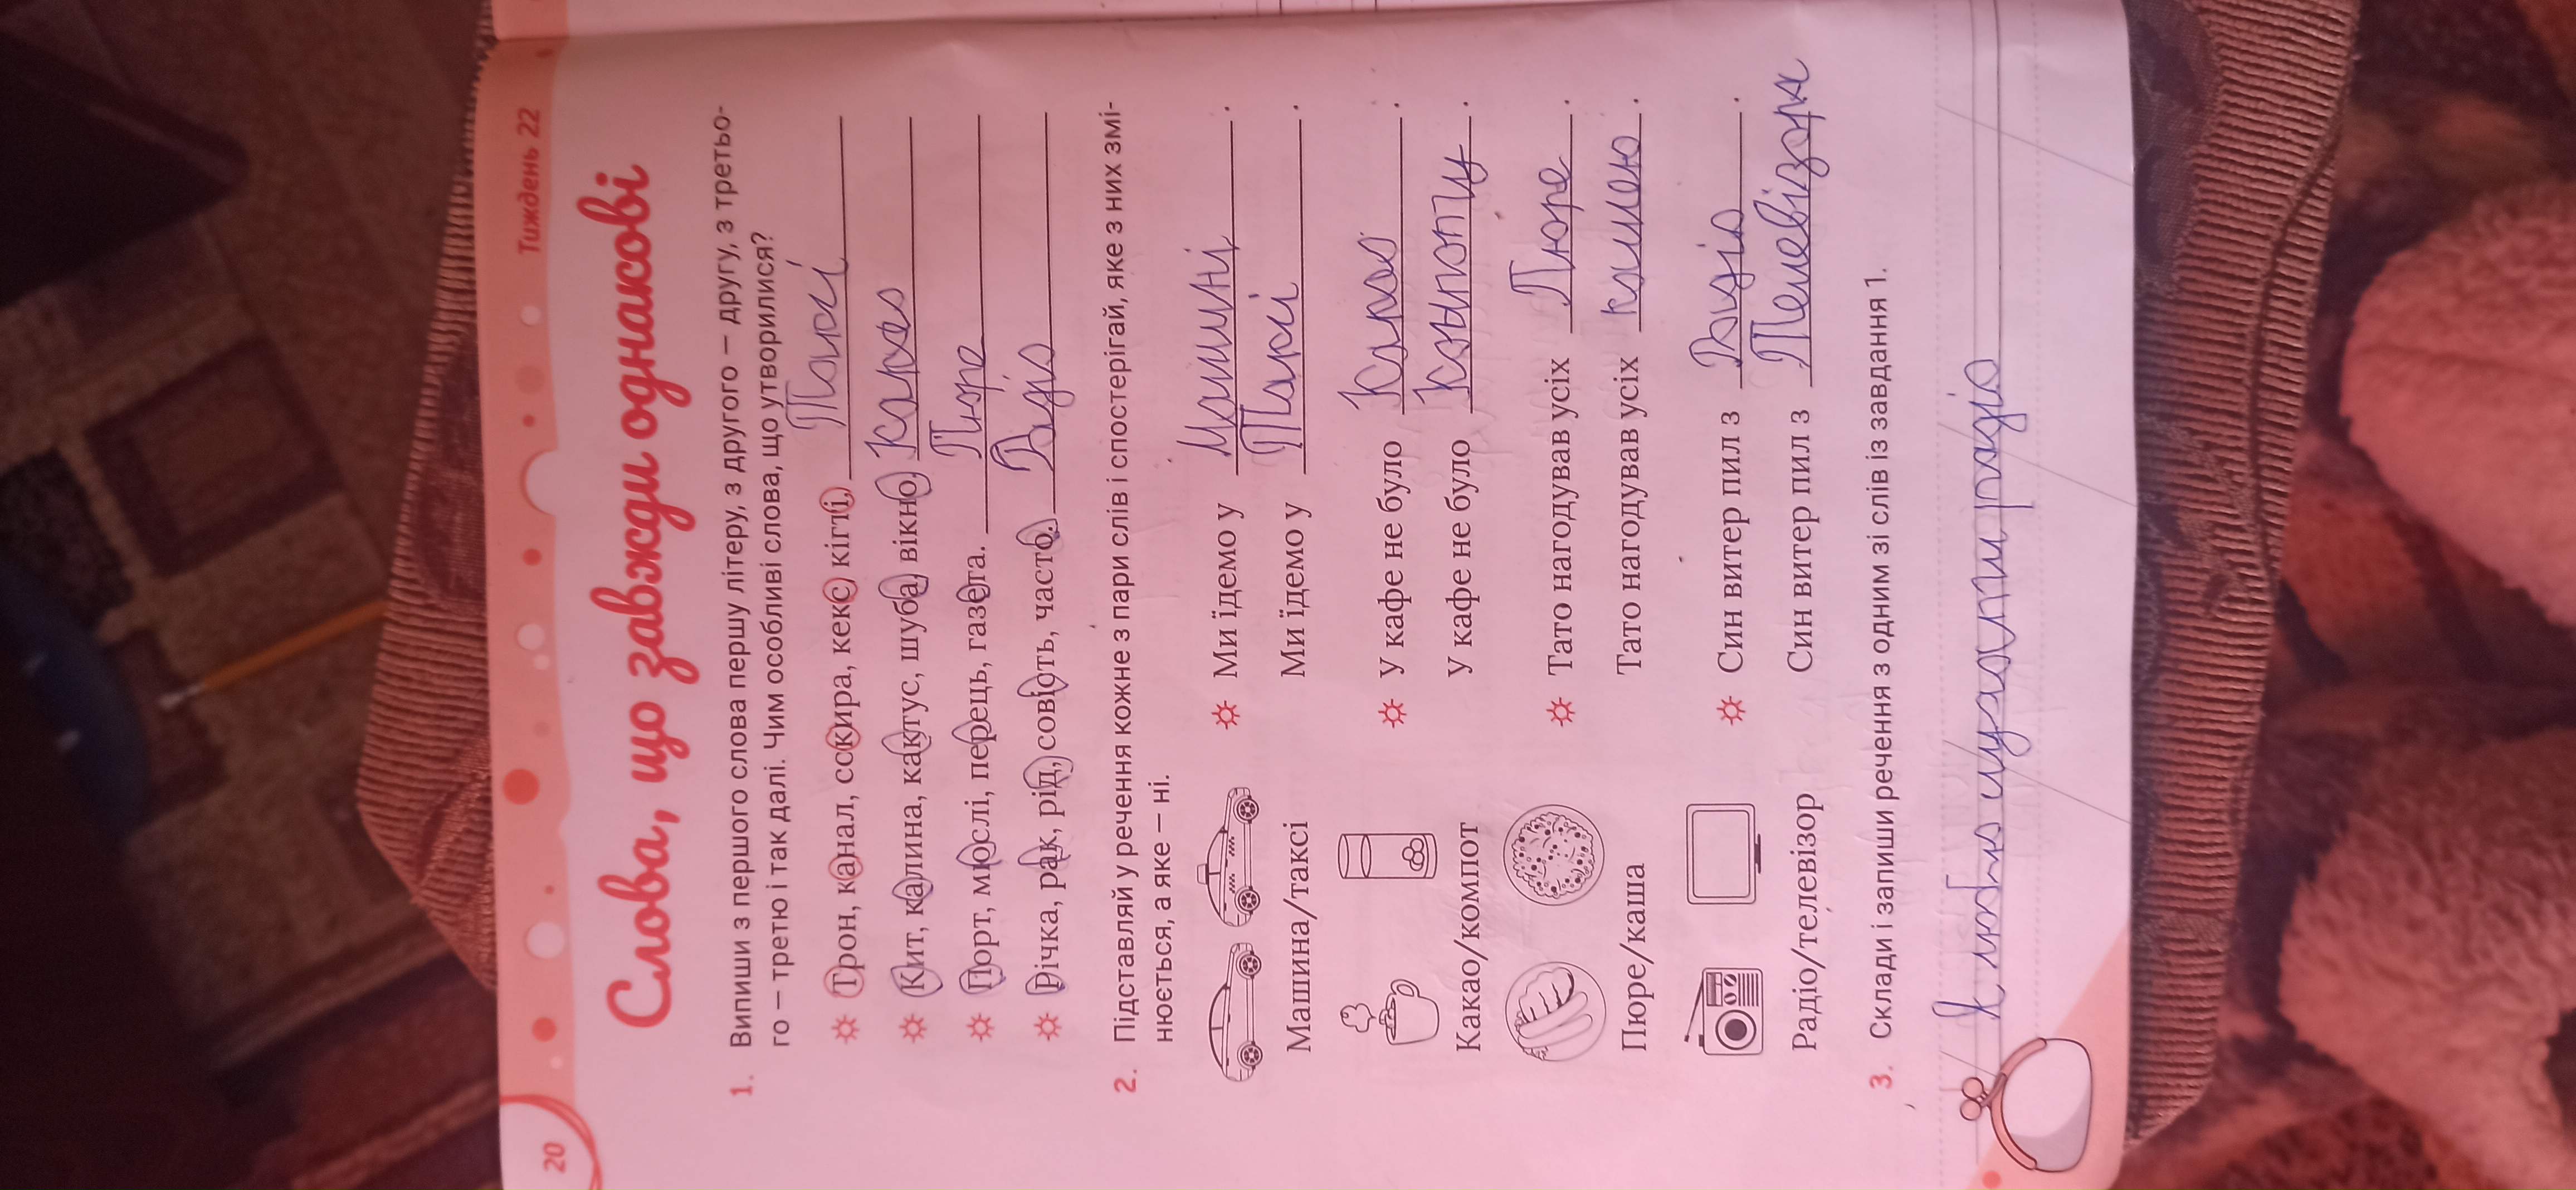 20
Тиждень 22
Слова, що завжди однакові
1. Випиши з першого слова першу літеру, з другого — другу, з третьо-
го — третю і так далі. Чим особливі слова, що утворилися?
Трон, канал, сокира, кекс, кігті, Таксі
Кит, калина, кактус, шуба, вікно,
Порт, мюслі, перець, газета. Пюре
Річка, рак, рід, совість, часто.
2. Підставляй у речення кожне з пари слів і спостерігай, яке з них змі-
нюється, а яке — ні.
Машина/таксі
Ми їдемо у Машині.
Ми їдемо у Таксі.
Какао/компот
У кафе не було
У кафе не було
Пюре/каша
Тато нагодував усіх Пюре.
Тато нагодував усіх кашею.
Радіо/телевізор
Син витер пил з
Син витер пил з
3. Склади і запиши речення з одним зі слів із завдання 1.
Я люблю радіо